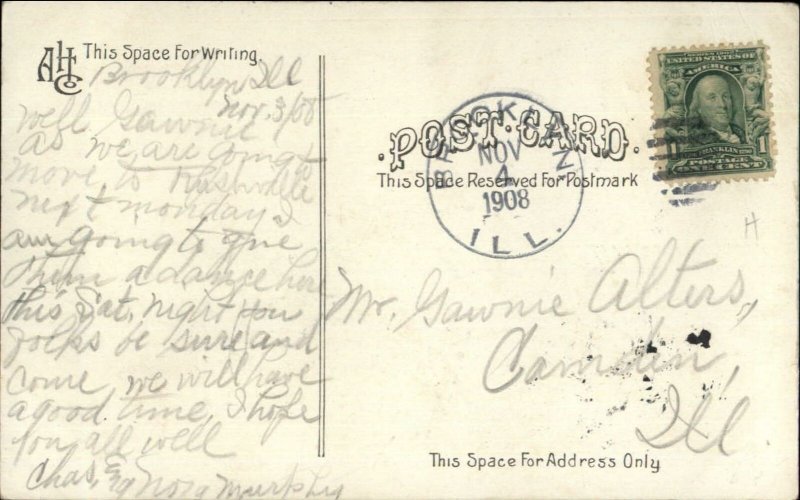 AHCo
This Space For Writing.
Brooklyn Ill
Nov. 3/08
well Gawnie
as we are going to
move to Rushville
next monday I
am going to give
them a dance here
this Sat. night you
folks be sure and
come, we will have
a good time, I hope
you all well
Chas. & Nora Murphy
POST CARD.
This Space Reserved For Postmark
BROOKLYN
NOV
4
1908
ILL.
UNITED STATES OF
AMERICA
1 FRANKLIN 1
POSTAGE
ONE CENT
H
Mr. Gawnie Alters,
Camden,
Ill
This Space For Address Only